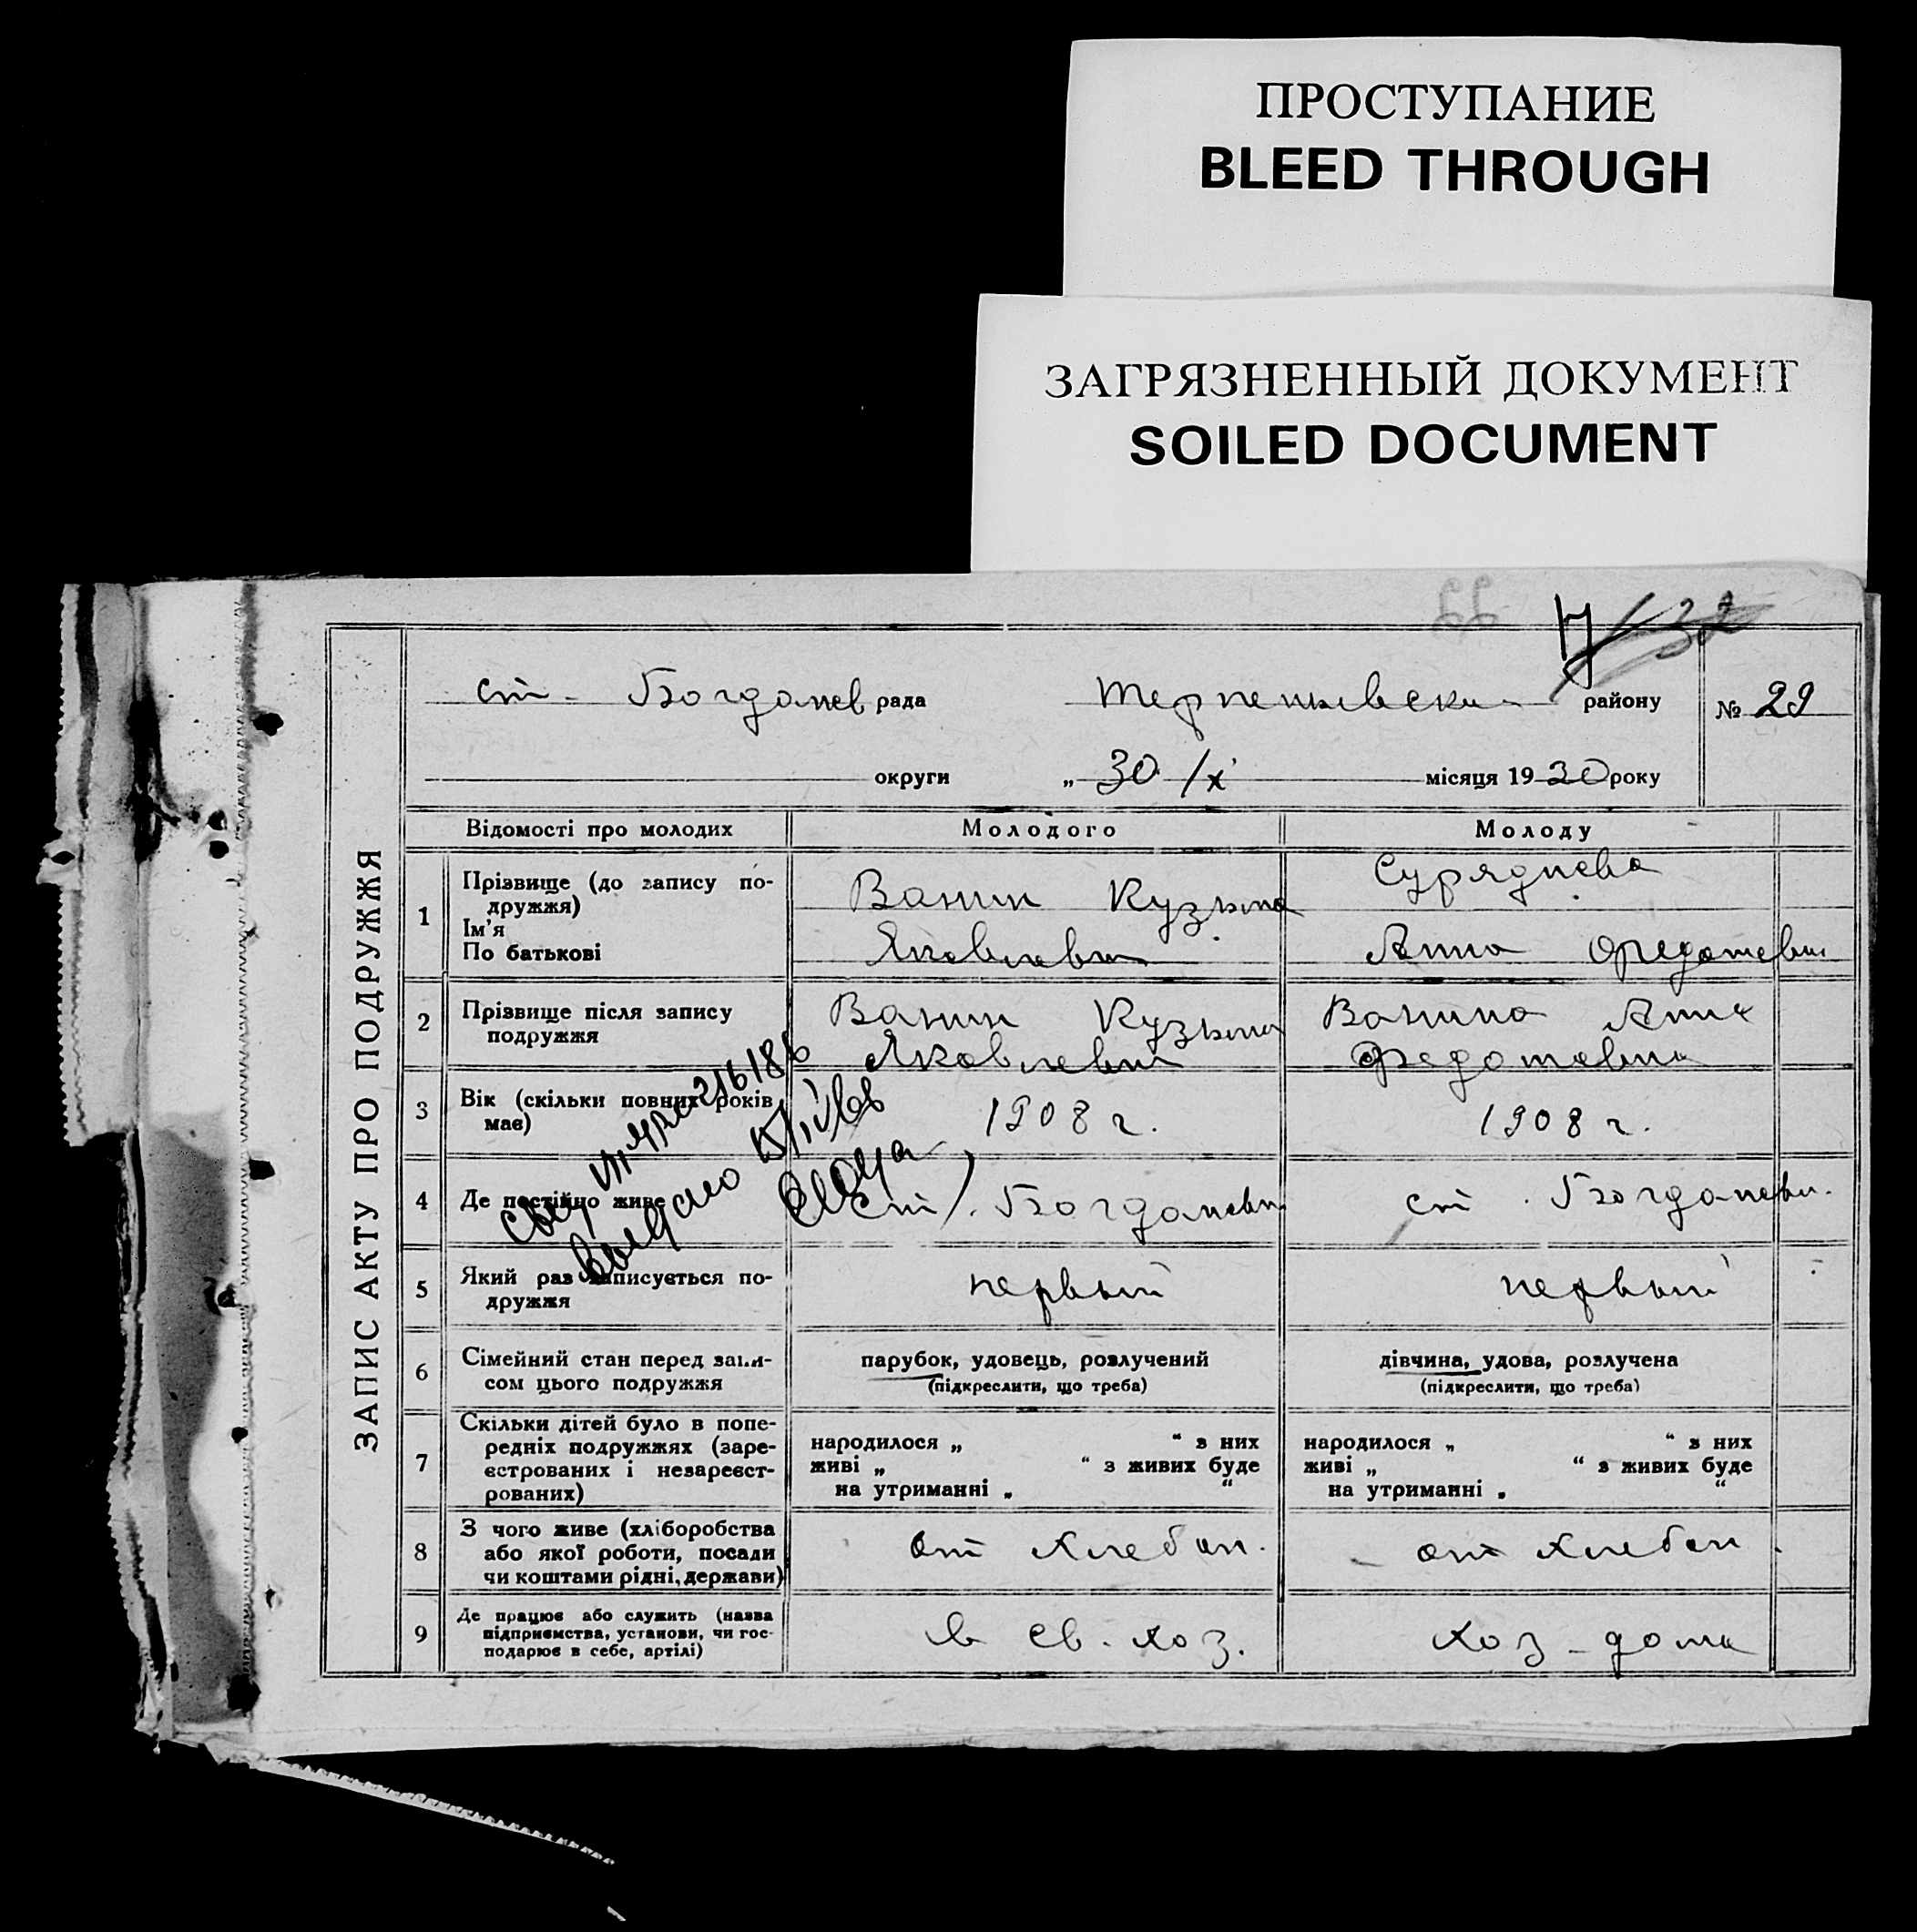 ПРОСТУПАНИЕ
BLEED THROUGH
ЗАГРЯЗНЕННЫЙ ДОКУМЕНТ
SOILED DOCUMENT
ЗАПИС АКТУ ПРО ПОДРУЖЖЯ
ст - Богданев рада Терпеньевски району № 29
округи „ 30 /X місяця 1930 року
Відомості про молодих Молодого Молоду
1 Прізвище (до запису по-
дружжя)
Ім'я
По батькові
Ванин Кузьма
Яковлевич
Суряднева
Анна Федотевн
2 Прізвище після запису
подружжя
Ванин Кузьма
Яковлевич
Ванина Анна
Федотевна
3 Вік (скільки повних років
має)
1908 г.
1908 г.
4 Де постійно живе
ст. Богдановн
ст. Богдановн.
5 Який раз записується по-
дружжя
первый
первый
6 Сімейний стан перед запи-
сом цього подружжя
парубок, удовець, розлучений
(підкреслити, що треба)
дівчина, удова, розлучена
(підкреслити, що треба)
7 Скільки дітей було в попе-
редніх подружжях (заре-
єстрованих і незареєст-
рованих)
народилося „ “ з них
живі „ “ з живих буде
на утриманні „ “
народилося „ “ з них
живі „ “ з живих буде
на утриманні „ “
8 З чого живе (хліборобства
або якої роботи, посади
чи коштами рідні, держави)
от хлебоп.
от хлебоп.
9 Де працює або служить (назва
підприємства, установи, чи гос-
подарює в себе, артілі)
в св. хоз.
хоз - дома
выдано